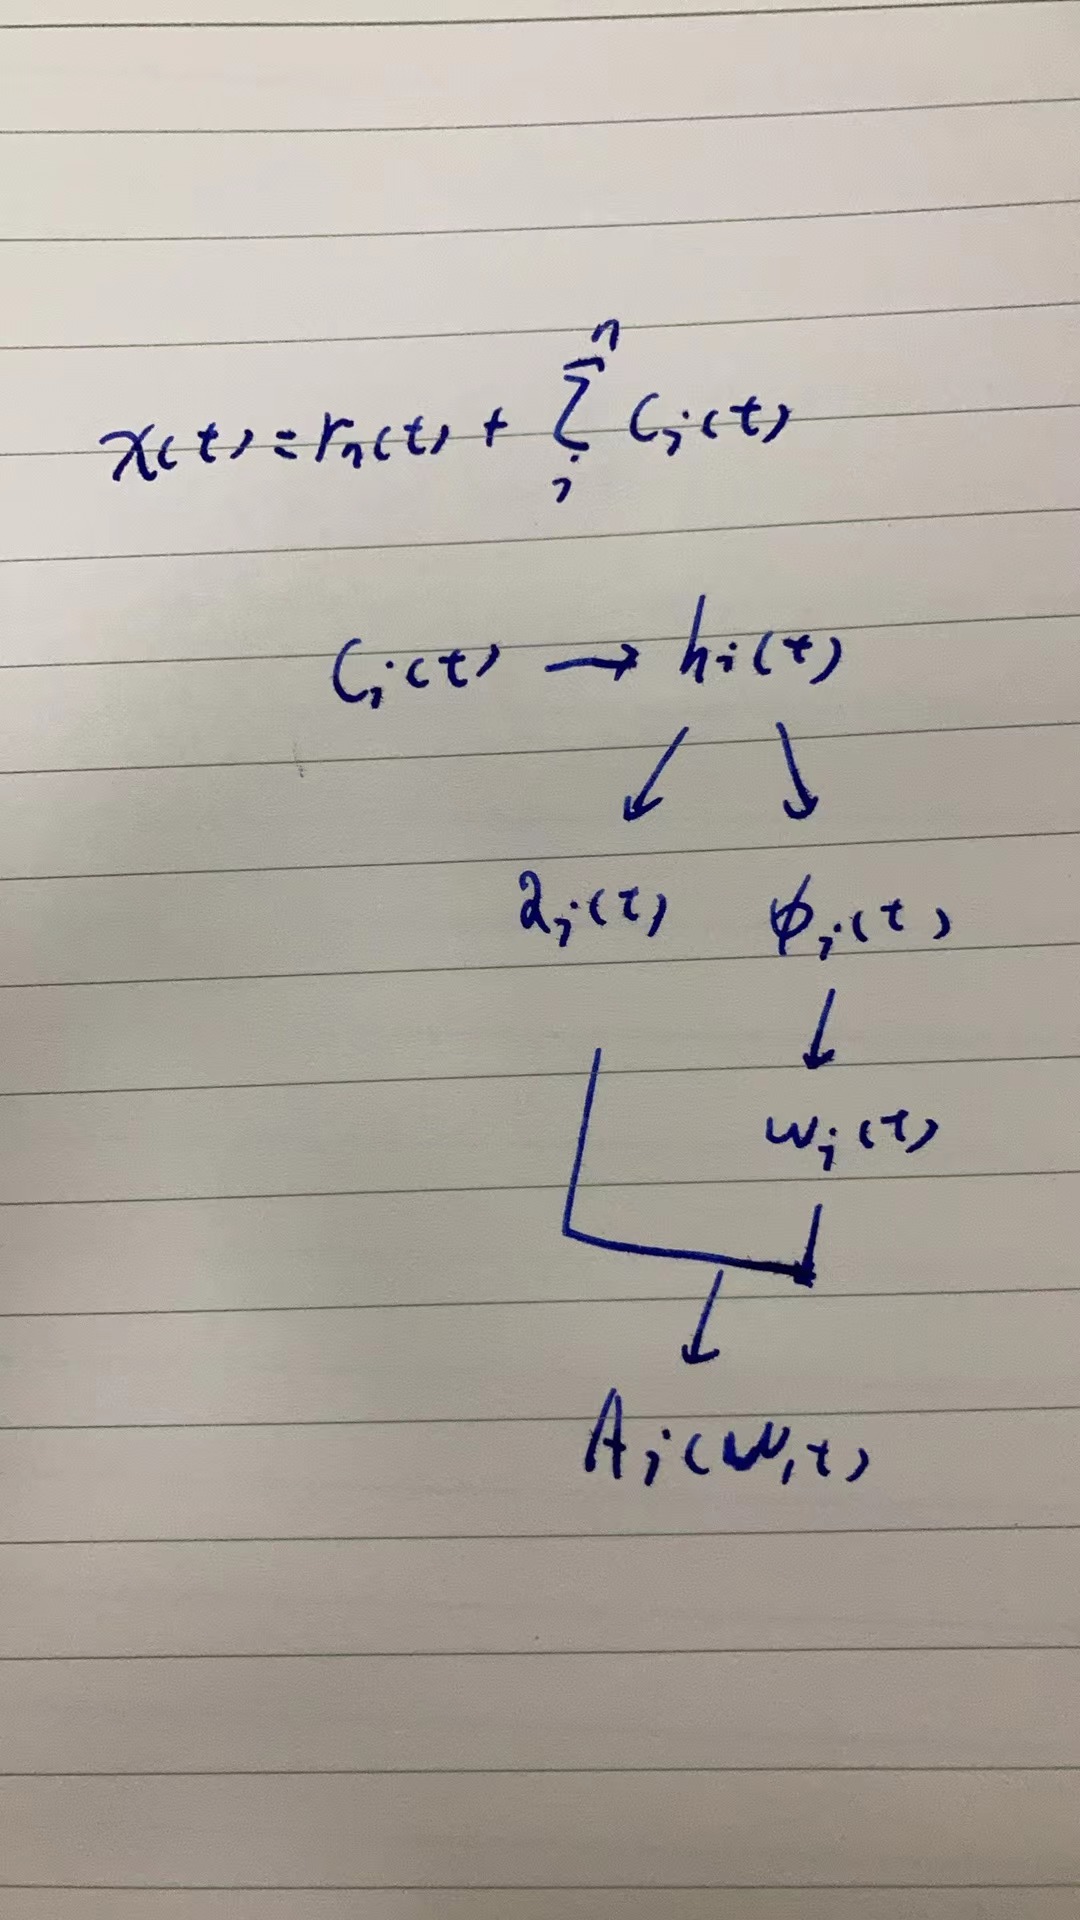 x(t) = rₙ(t) + Σ ⁿ ᵢ Cᵢ(t)
Cᵢ(t) → hᵢ(t)
↙ ↘
aᵢ(t) φᵢ(t)
↓
ωᵢ(t)
↓
Aᵢ(ω,t)